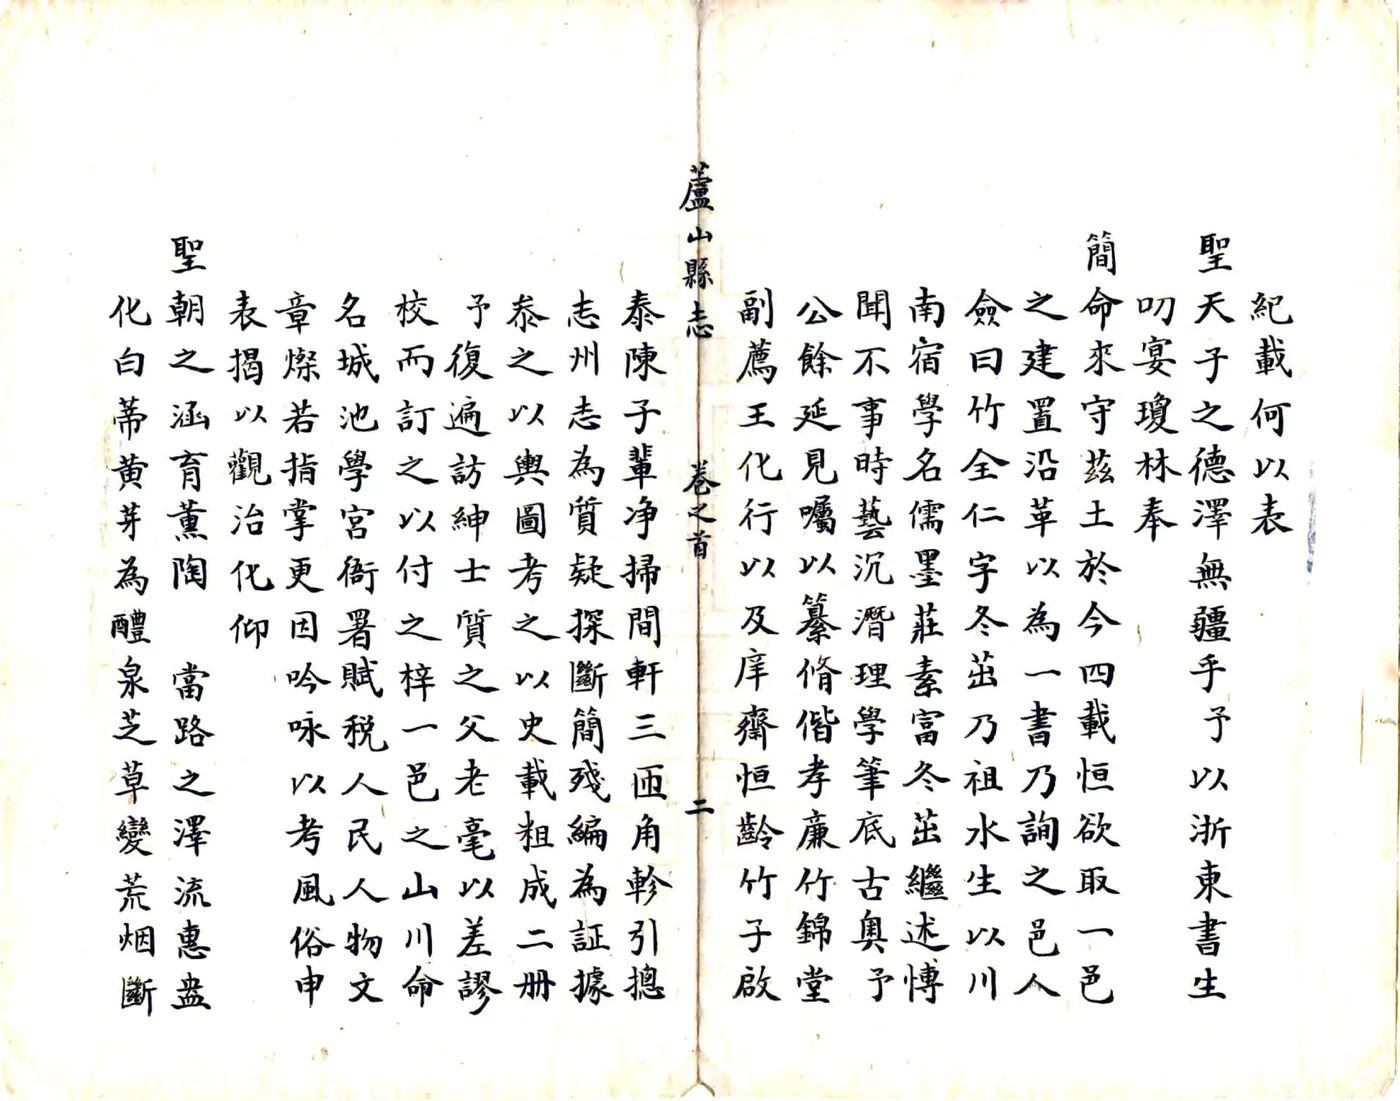 紀載何以表
聖天子之德澤無疆乎予以浙東書生
叨宴瓊林奉
簡命來守茲土於今四載恒欲取一邑
之建置沿革以為一書乃詢之邑人
僉曰竹全仁字冬茁乃祖水生以川
南宿學名儒墨莊素富冬茁繼述博
聞不事時藝沉潛理學筆底古奧予
公餘延見囑以纂脩偕孝廉竹錦堂
副薦王化行以及庠齋恒齡竹子啟
蘆山縣志 卷之首 二
泰陳子輩净掃間軒三匝角軫引摠
志州志為質疑探斷簡殘編為証據
泰之以輿圖考之以史載粗成二册
予復遍訪紳士質之父老毫以差謬
校而訂之以付之梓一邑之山川命
名城池學宮衙署賦税人民人物文
章燦若指掌更因吟咏以考風俗申
表揭以觀治化仰
聖朝之涵育薰陶 當路之澤流惠盎
化白蒂黄芽為醴泉芝草變荒烟斷